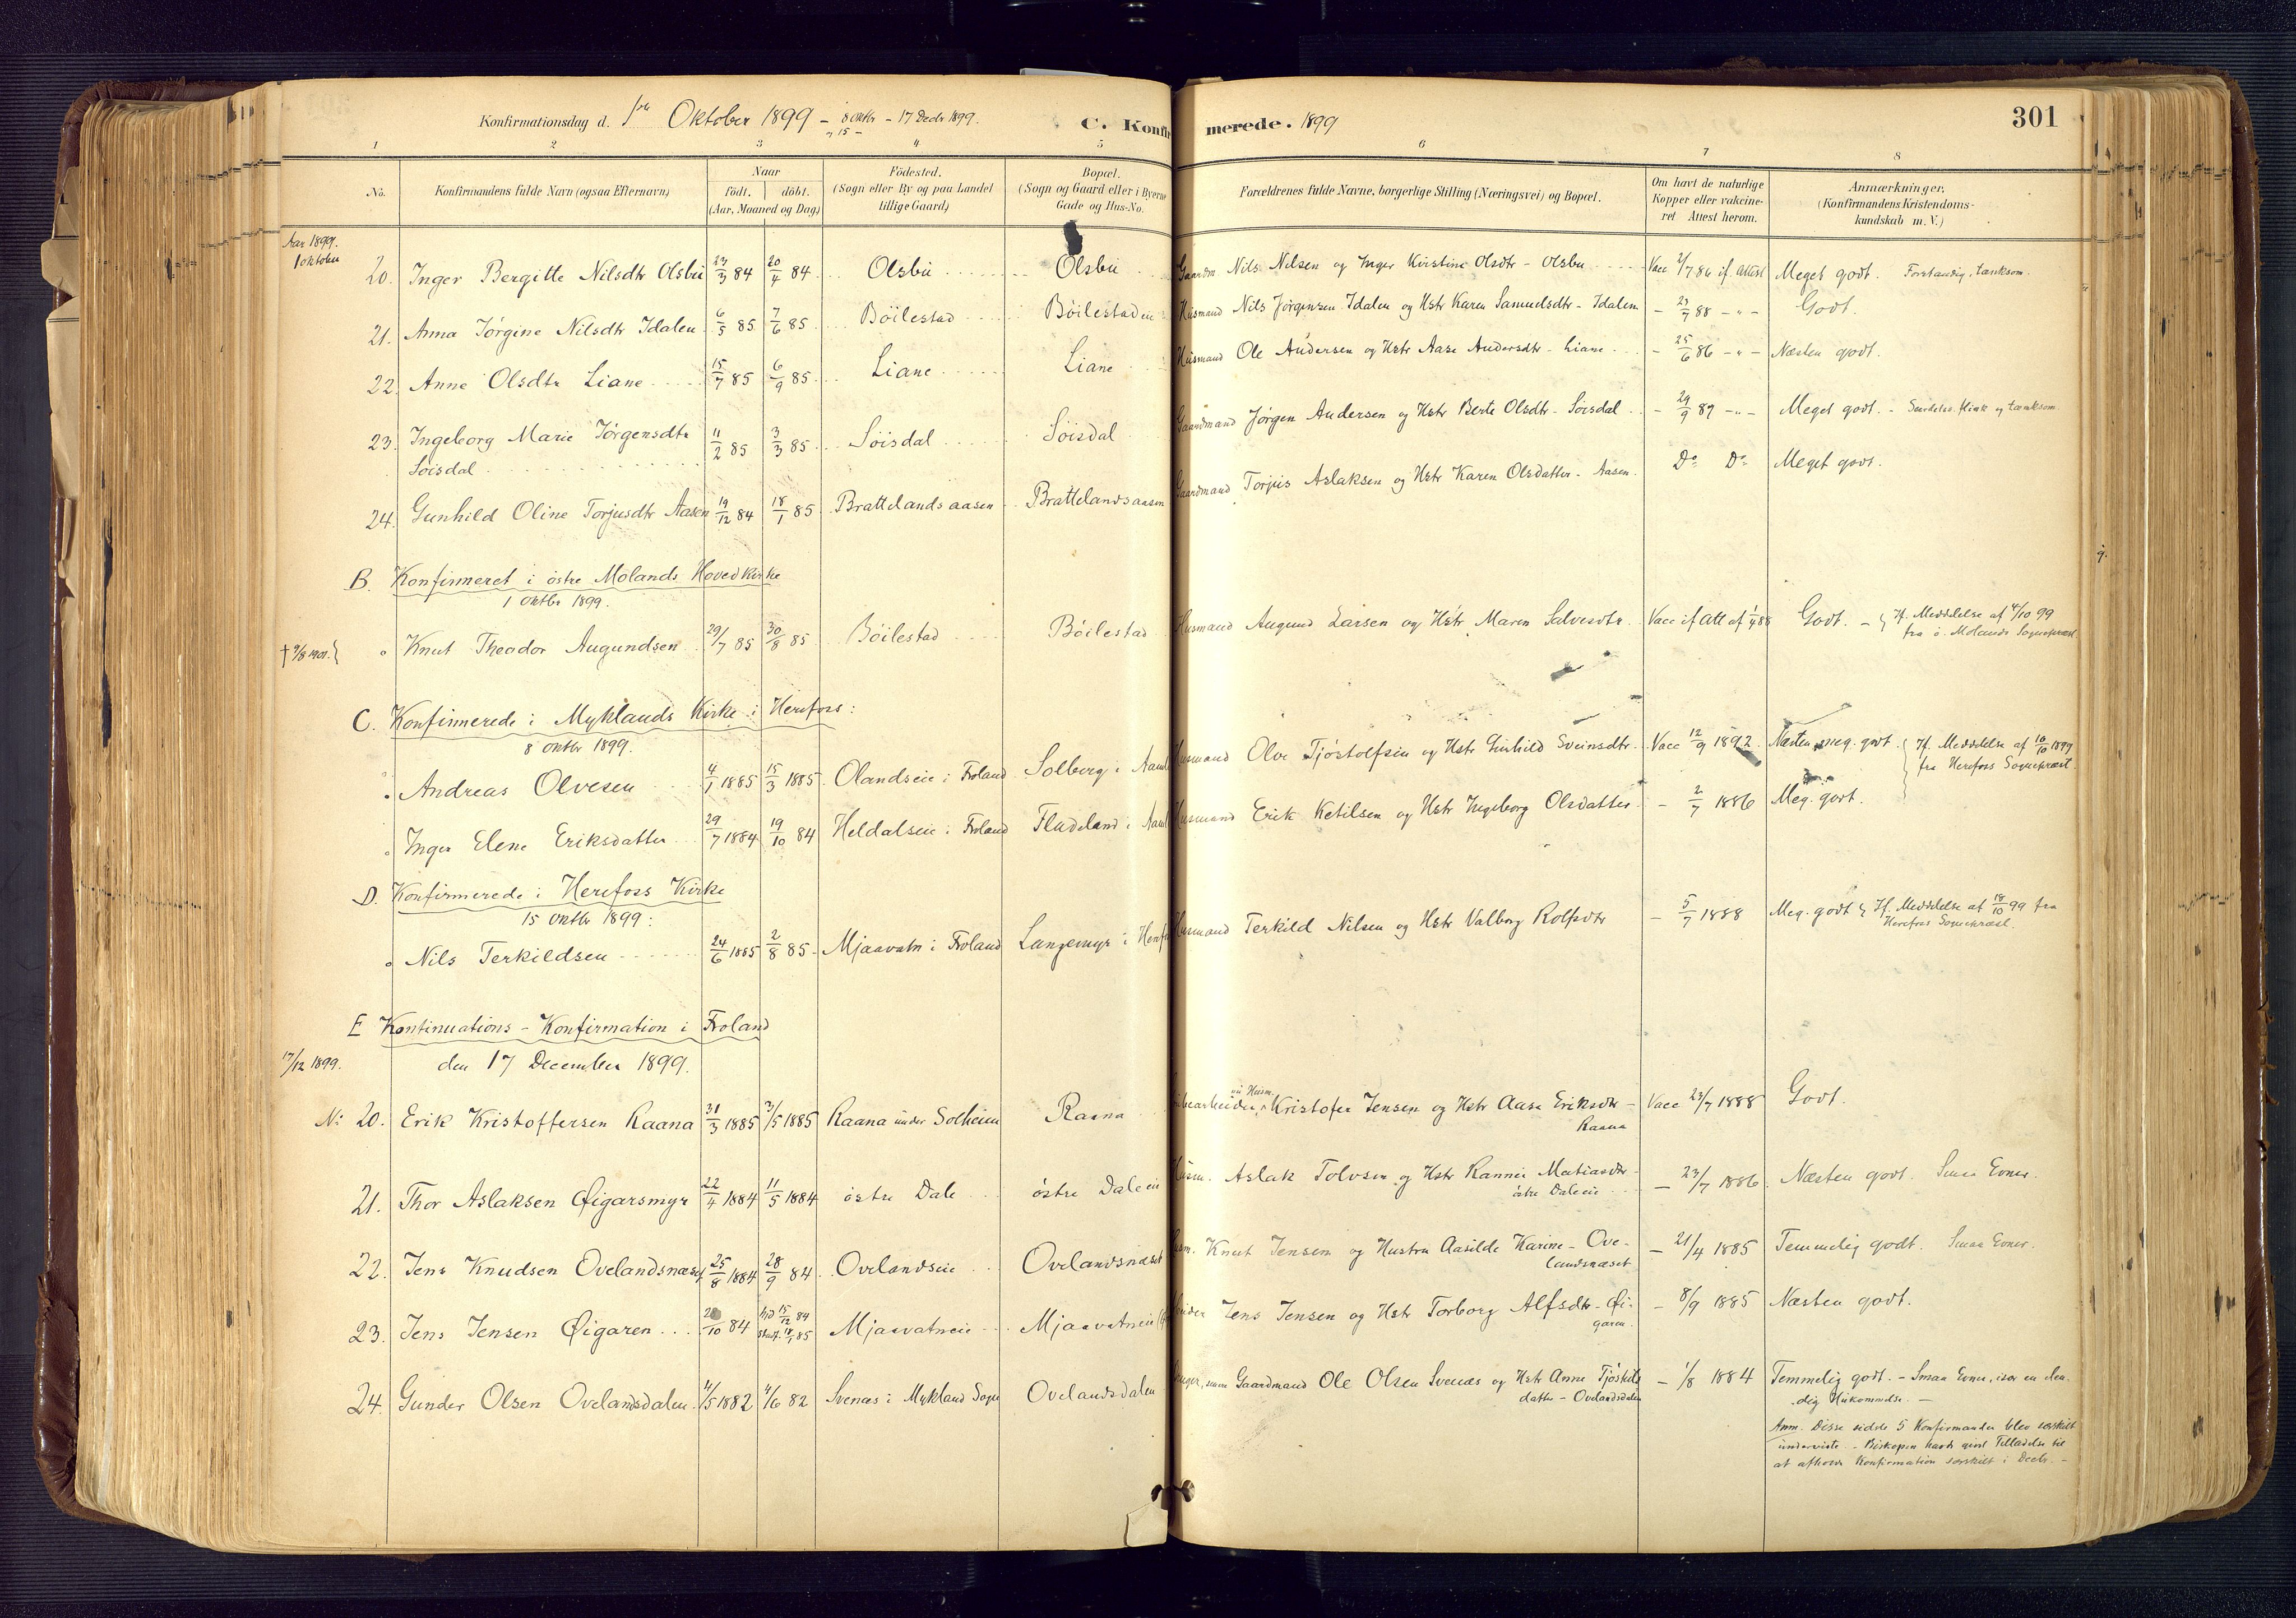 Konfirmationsdag d. 1ste Oktober 1899 – 8 Oktbr – 17 Decbr 1899.
„ 15 –
C. Konfirmerede. 1899
301
1 2 3 4 5 6 7 8
No.
Konfirmandens fulde Navn (ogsaa Efternavn)
Naar
födt. döbt.
(Aar, Maaned og Dag)
Födested.
(Sogn eller By og paa Landet
tillige Gaard)
Bopæl.
(Sogn og Gaard eller i Byerne
Gade og Hus-No.
Forældrenes fulde Navne, borgerlige Stilling (Næringsvei) og Bopæl.
Om havt de naturlige
Kopper eller vakcine-
ret Attest herom.
Anmærkninger.
(Konfirmandens Kristendoms-
kundskab m. V.)
Aar 1899.
1 Oktober
20. Inger Bergitte Nilsdtr Olsbu 23/3 84 20/4 84 Olsbu Olsbu Gaardm. Nils Nilsen og Inger Kirstine Olsdtr – Olsbu Vacc 2/7 86 if. Attest Meget godt. Forstandig, tænksom.
21. Anna Jörgine Nilsdtr Idalen 6/5 85 7/6 85 Böilestad Böilestadeie Husmand Nils Jörgensen Idalen og Hstr Karen Samuelsdtr – Idalen – 23/7 88 – „ – Godt.
22. Anne Olsdtr Liane 15/7 85 6/9 85 Liane Liane Husmand Ole Andersen og Hstr Aase Andersdtr – Liane – 25/6 86 – „ – Næsten godt.
23. Ingeborg Marie Jörgensdtr 11/2 85 3/3 85 Söisdal Söisdal Gaardmand Jörgen Andersen og Hstr Berte Olsdtr – Söisdal – 29/9 89 – „ – Meget godt. – Særdeles flink og tænksom
Söisdal
24. Gunhild Oline Torjusdtr Aasen 19/12 84 18/1 85 Brattelandsaasen Brattelandsaasen Gaardmand Torjus Aslaksen og Hstr Karen Olsdatter – Aasen. Do Do Meget godt.
B. Konfirmeret i östre Molands Hovedkirke
1 Oktbr 1899.
† 9/8 1901. „ Knut Theodor Augundsen 29/7 85 30/8 85 Böilestad Böilestad Husmand Augund Larsen og Hstr Maren Salvesdtr. Vacc if Att af 1/7 88 Godt. – { If. Meddelelse af 4/10 99
fra ö. Molands Sognepræst
C. Konfirmerede i Myklands Kirke i Herefoss:
8 Oktbr 1899.
„ Andreas Olvesen 4/1 1885 15/3 1885 Olandseie i Froland Solberg i Aaml Husmand Olve Tjöstolfsen og Hstr Gunhild Sveinsdtr. Vacc 12/9 1892. Næsten meg. godt. { If. Meddelelse af 10/10 1899
fra Herefoss Sognepræst.
„ Inger Elene Eriksdatter 29/7 1884 19/10 84 Heldalseie i Froland Fladeland i Aaml Husmand Erik Ketilsen og Hstr Ingeborg Olsdatter – 2/7 1886 Meg. godt.
D. Konfirmerede i Herefoss Kirke
15 Oktbr 1899:
„ Nils Terkildsen 24/6 1885 2/8 85 Mjaavatn i Froland Langemyr i Heref Husmand Terkild Nilsen og Hstr Valborg Rolfsdtr – 5/7 1888 Meg. godt { If. Meddelelse af 18/10 99 fra
Herefoss Sognepræst.
E Kontinuations-Konfirmation i Froland
17/12 1899. den 17 December 1899.
No 20. Erik Kristoffersen Raana 31/3 1885 3/5 1885 Raana under Solheim Raana nu Husm. Kristofer Jensen og Hstr Aase Eriksdtr – Vacc 23/7 1888 Godt.
Raana
21. Thor Aslaksen Øigarsmyr 22/4 1884 11/5 1884 östre Dale östre Daleeie Husm. Aslak Tolvsen og Hstr Rannei Matiasdtr – – 23/7 1886. Næsten godt. Smaa Evner.
östre Daleeie
22. Jens Knudsen Ovelandsnæset 25/8 1884 28/9 84 Ovelandseie Ovelandsnæset Husm. Knut Jensen og Hustru Aasilde Karine – Ove- – 21/4 1885 Temmelig godt. Smaa Evner.
landsnæset
23. Jens Jensen Øigaren /10 84 hjd 15/12 84 Mjaavatneie Mjaavatneie Jens Jensen og Hstr Torborg Alfsdtr – Øi- – 8/9 1885 Næsten godt.
85 garen.
24. Gunder Olsen Ovelandsdalen 4/5 1882 4/6 82 Svenæs i Mykland Sogn Ovelandsdalen Gaardmand Ole Olsen Svenæs og Hstr Anne Tjöstels – 1/8 1884 Temmelig godt. – Smaa Evner, især en elen-
datter – Ovelandsdalen dig Hukommelse. –
Anm. Disse sidste 5 Konfirmander blev særskilt
underviste. – Biskopen havde givet Tilladelse til
at afholde Konfirmation særskilt i Decbr. –